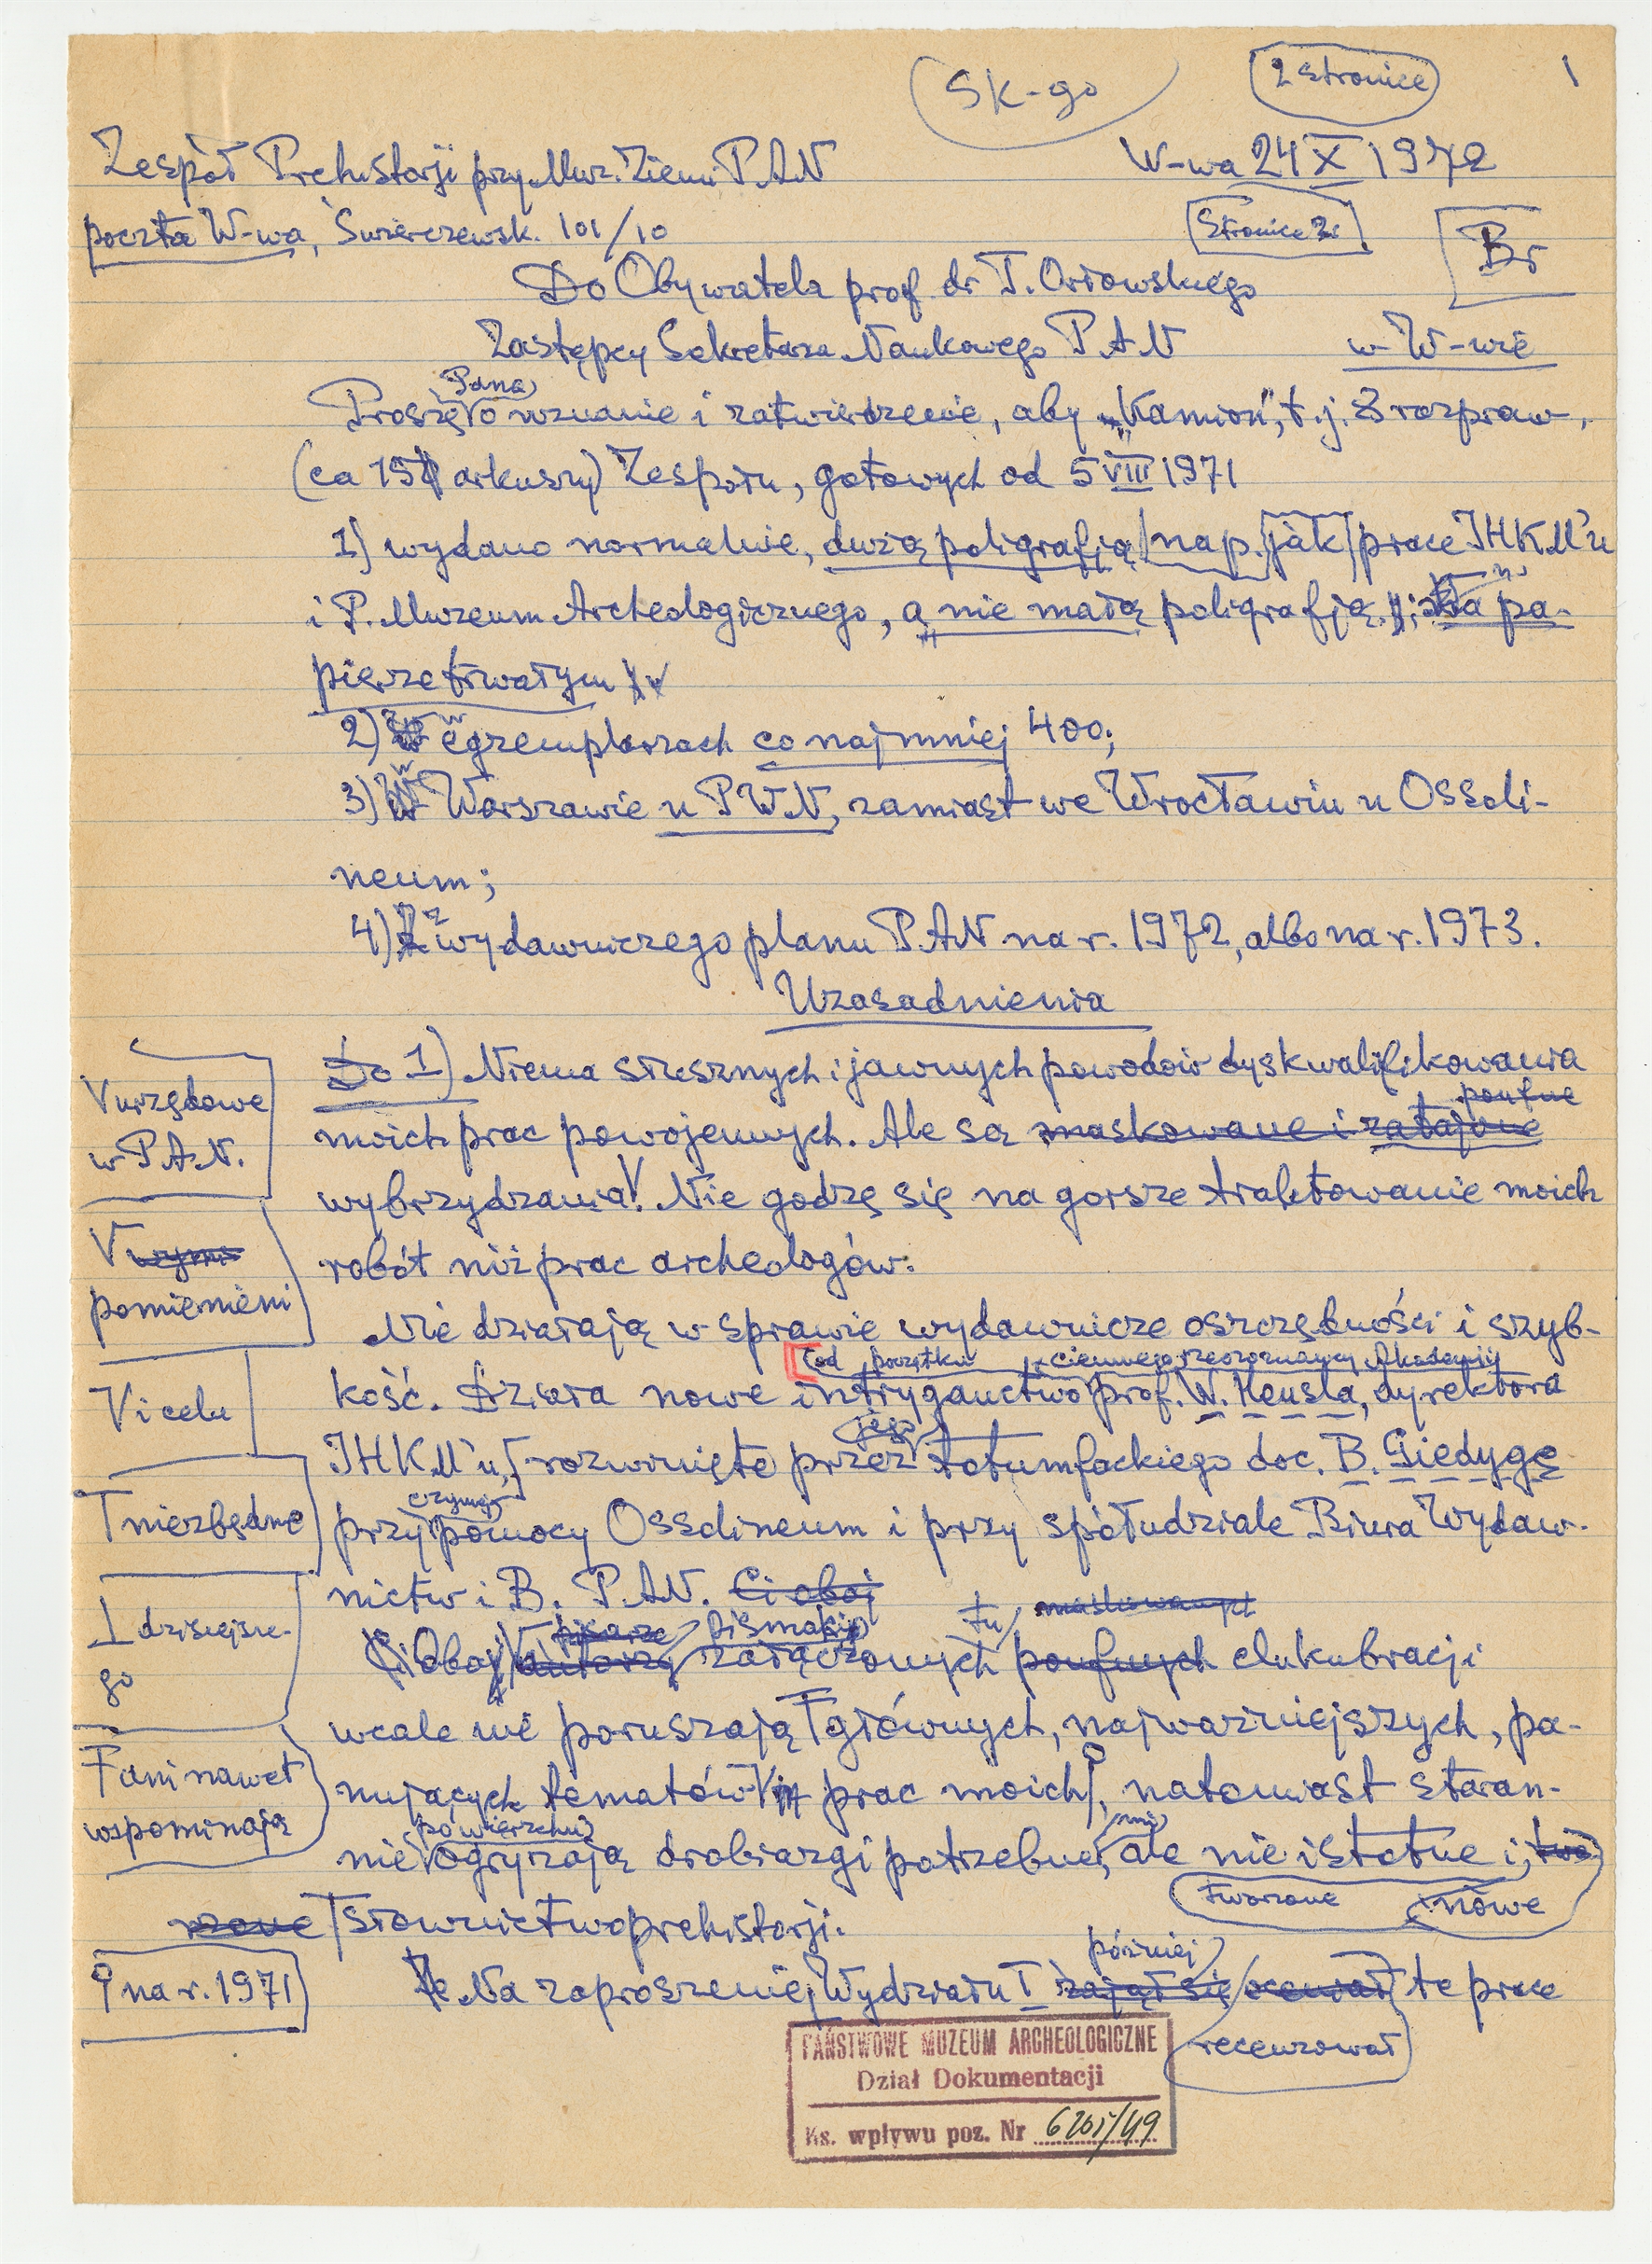 Sk-go
2 stronice
1
Zespół Prehistorji przy Muz. Ziemi P.A.N
W-wa 24 X 1972
poczta W-wa, Świerczewsk. 101/10
Stronice 2
Br
Do Obywatela prof. dr T. Orłowskiego
Zastępcy Sekretarza Naukowego P.A.N
w W-wie
Pana
Proszę o uznanie i zatwierdzenie, aby „Kamion", t.j. 3 rozpraw
(ca 15 arkuszy) Zespołu, gotowych od 5 VIII 1971
1) wydano normalnie, dużą poligrafją nap. jak prace IHKM'u
i P. Muzeum Archeologicznego, a nie małą poligrafją; na pa-
pierze trwałym
2) w egzemplarzach co najmniej 400;
3) w Warszawie u P.W.N, zamiast we Wrocławiu u Ossoli-
neum;
4) z wydawniczego planu P.A.N na r. 1972, albo na r. 1973.
Uzasadnienia
Do 1) Niema słusznych i jawnych powodów dyskwalifikowania
V urzędowe
w P.A.N.
poufne
moich prac powojennych. Ale są maskowane i zatajone
wybrzydzania! Nie godzę się na gorsze traktowanie moich
V wymi
pomienieni
robót niż prac archeologów.
Nie działają w sprawie wydawnicze oszczędności i szyb-
od początku ciemnego rzeczoznawcy Akademij
V i celu
kość. Działa nowe intryganctwo prof. W. Hensla, dyrektora
jego
IHKM'u, rozwinięte przez totumfackiego doc. B. Giedygę
czynnej
T niezbędne
przy pomocy Ossolineum i przy spółudziale Biura Wydaw-
nictw i B. P.A.N. Ci obaj
⊥ dzisiejsze-
go
pisarze pismaki tu maskowanych
Ci Obaj autorzy załączonych poufnych elukubracji
wcale nie poruszają głównych, najważniejszych, pa-
F ani nawet
wspominają
nujących tematów prac moich, natomiast staran-
powierzchni
nie ogryzają drobiazgi potrzebne, ale nie istotne i, two
tworzone nowe
rzone słownictwo prehistorji.
później
na r. 1971
Na zaproszenie Wydziału I zajął się oceniał te prace
recenzował
PAŃSTWOWE MUZEUM ARCHEOLOGICZNE
Dział Dokumentacji
Ks. wpływu poz. Nr 6201/49